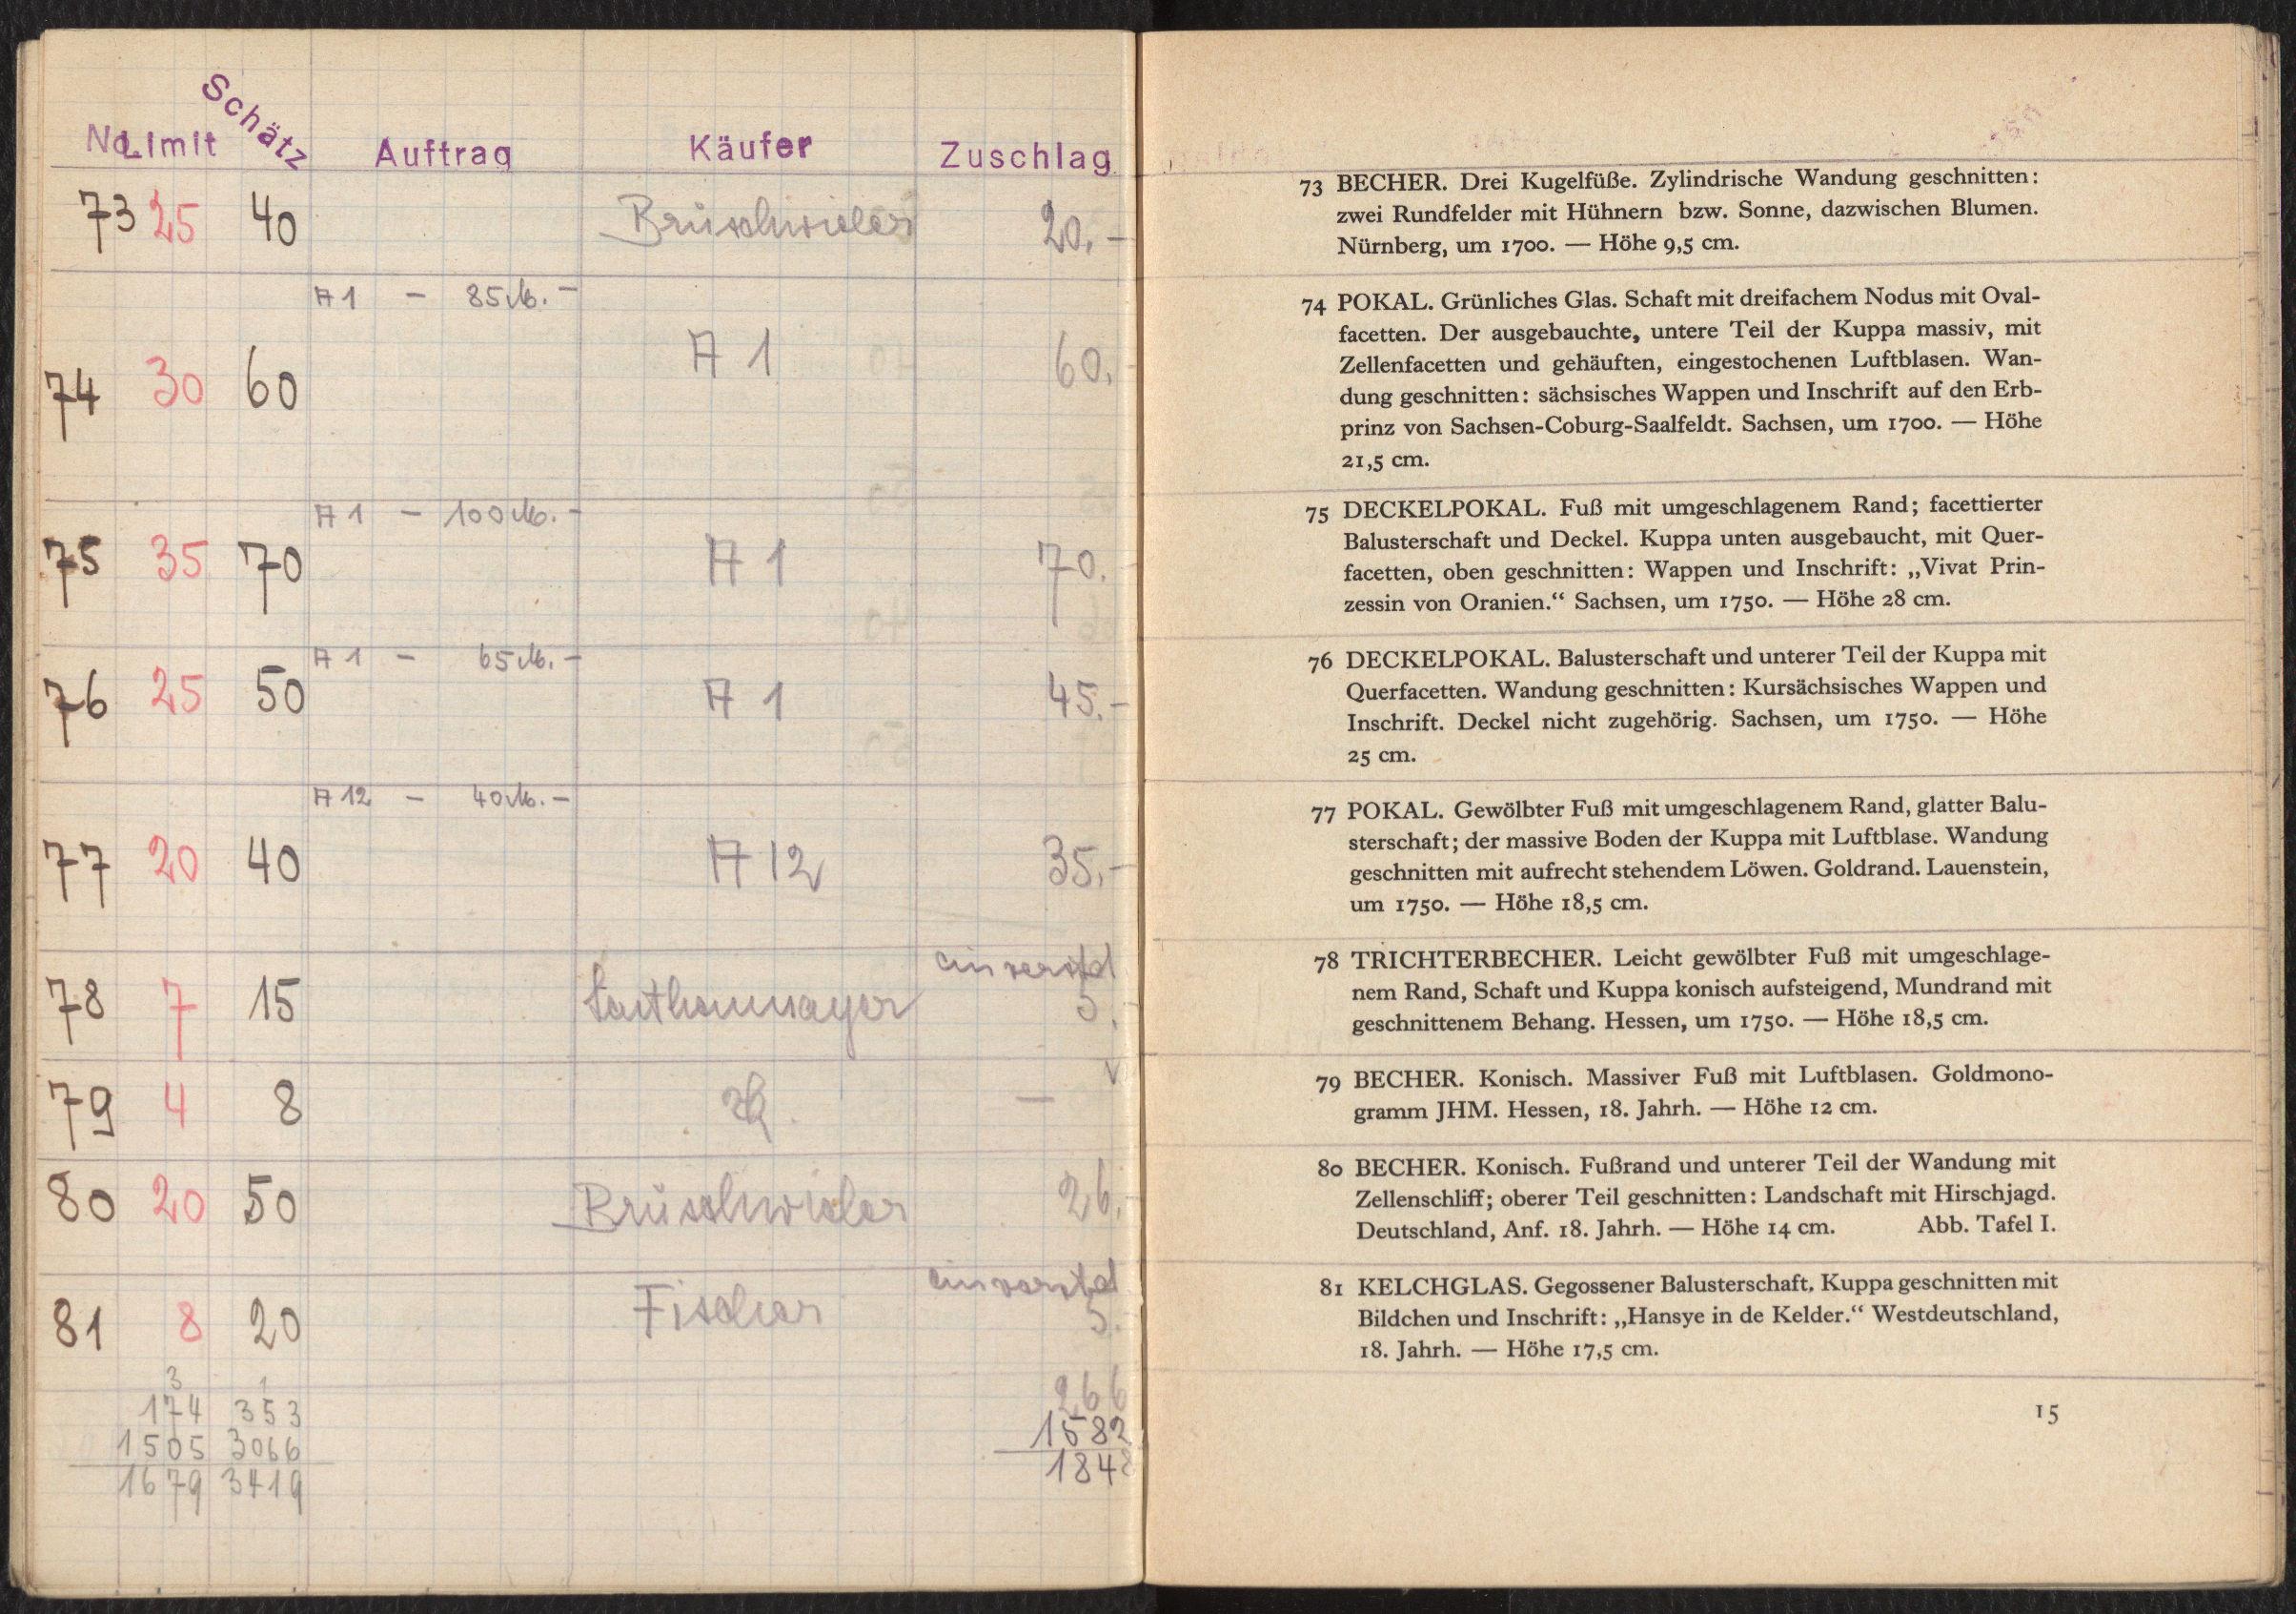 Schätz
No Limit Auftrag Käufer Zuschlag
73 25 40 Brüschwieler 20.-
A 1 - 85 M. -
74 30 60 A 1 60.
A 1 - 100 M. -
75 35 70 A 1 70.
A 1 - 65 M. -
76 25 50 A 1 45.-
A 12 - 40 M. -
77 20 40 A 12 35.-
einverstd
78 7 15 5.
79 4 8 —
80 20 50 Brüschwieler 26.
einverstd
81 8 20 Fischer 5.
3 1
174 353 266
1505 3066 1582
1679 3419 1848
73 BECHER. Drei Kugelfüße. Zylindrische Wandung geschnitten:
zwei Rundfelder mit Hühnern bzw. Sonne, dazwischen Blumen.
Nürnberg, um 1700. — Höhe 9,5 cm.
74 POKAL. Grünliches Glas. Schaft mit dreifachem Nodus mit Oval-
facetten. Der ausgebauchte, untere Teil der Kuppa massiv, mit
Zellenfacetten und gehäuften, eingestochenen Luftblasen. Wan-
dung geschnitten: sächsisches Wappen und Inschrift auf den Erb-
prinz von Sachsen-Coburg-Saalfeldt. Sachsen, um 1700. — Höhe
21,5 cm.
75 DECKELPOKAL. Fuß mit umgeschlagenem Rand; facettierter
Balusterschaft und Deckel. Kuppa unten ausgebaucht, mit Quer-
facetten, oben geschnitten: Wappen und Inschrift: „Vivat Prin-
zessin von Oranien.“ Sachsen, um 1750. — Höhe 28 cm.
76 DECKELPOKAL. Balusterschaft und unterer Teil der Kuppa mit
Querfacetten. Wandung geschnitten: Kursächsisches Wappen und
Inschrift. Deckel nicht zugehörig. Sachsen, um 1750. — Höhe
25 cm.
77 POKAL. Gewölbter Fuß mit umgeschlagenem Rand, glatter Balu-
sterschaft; der massive Boden der Kuppa mit Luftblase. Wandung
geschnitten mit aufrecht stehendem Löwen. Goldrand. Lauenstein,
um 1750. — Höhe 18,5 cm.
78 TRICHTERBECHER. Leicht gewölbter Fuß mit umgeschlage-
nem Rand, Schaft und Kuppa konisch aufsteigend, Mundrand mit
geschnittenem Behang. Hessen, um 1750. — Höhe 18,5 cm.
79 BECHER. Konisch. Massiver Fuß mit Luftblasen. Goldmono-
gramm JHM. Hessen, 18. Jahrh. — Höhe 12 cm.
80 BECHER. Konisch. Fußrand und unterer Teil der Wandung mit
Zellenschliff; oberer Teil geschnitten: Landschaft mit Hirschjagd.
Deutschland, Anf. 18. Jahrh. — Höhe 14 cm. Abb. Tafel I.
81 KELCHGLAS. Gegossener Balusterschaft. Kuppa geschnitten mit
Bildchen und Inschrift: „Hansye in de Kelder.“ Westdeutschland,
18. Jahrh. — Höhe 17,5 cm.
15